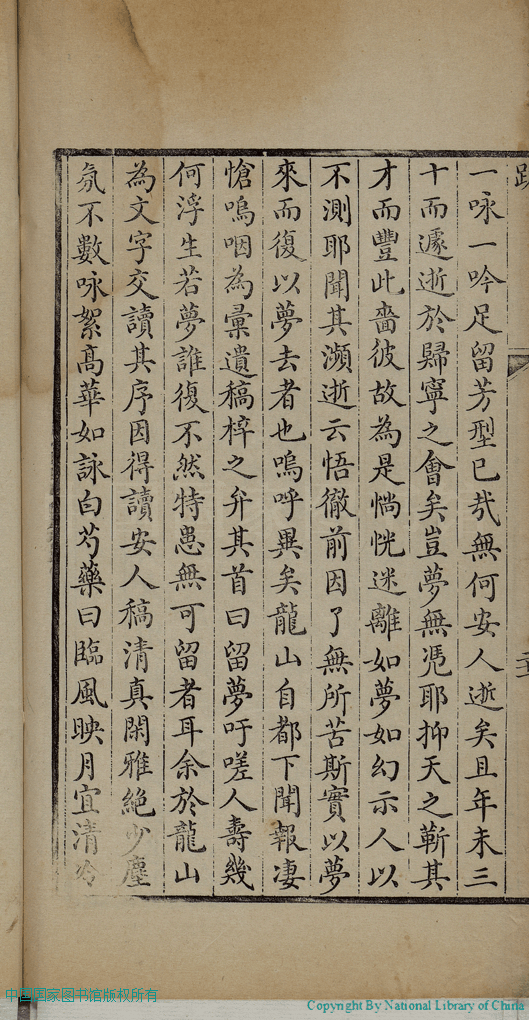 一咏一吟足留芳型已哉無何安人逝矣且年未三
十而遽逝於歸寧之會矣豈夢無凴耶抑天之靳其
才而豐此嗇彼故為是惝恍迷離如夢如幻示人以
不測耶聞其瀕逝云悟徹前因了無所苦斯實以夢
來而復以夢去者也嗚呼異矣龍山自都下聞報凄
愴嗚咽為彙遺稿梓之弁其首曰留夢吁嗟人壽幾
何浮生若夢誰復不然特患無可留者耳余於龍山
為文字交讀其序因得讀安人稿清真閑雅絕少塵
氛不數咏絮高華如詠白芍藥曰臨風映月宜清冷
中国国家图书馆版权所有
Copyright By National Library of China